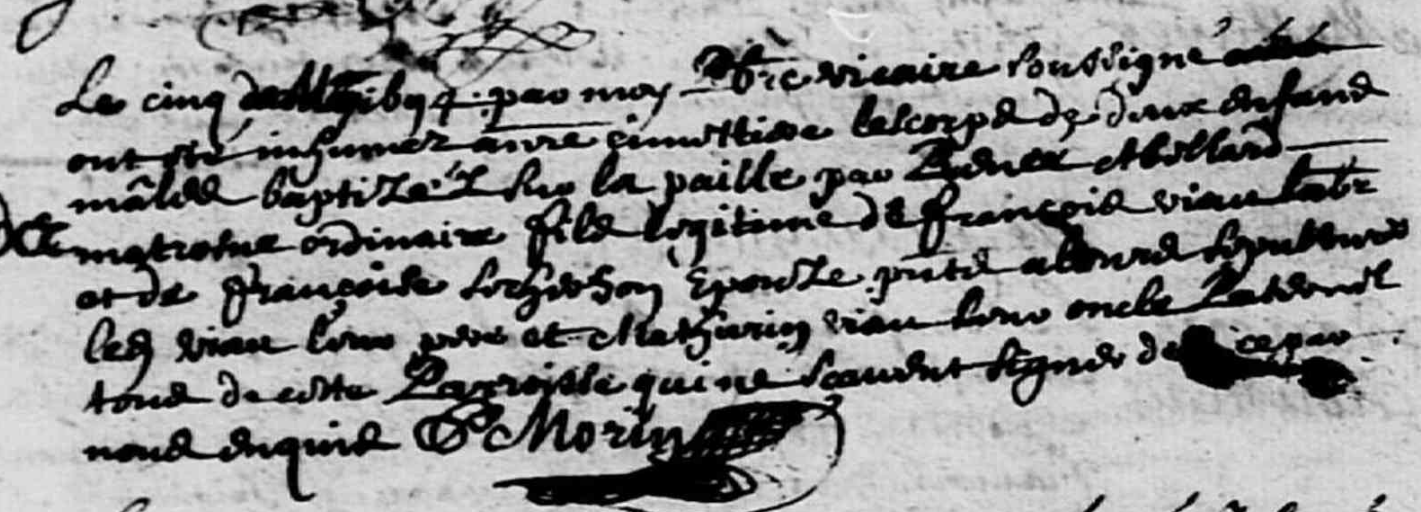 Le cinq par moy pbre vicaire soussigné
ont été inhumez a nre cimettiere les corps de deux enfans
mâles baptizez sur la paille par Renee Abellard
matrosne ordinaire fils legitime de françois viau labr
et de françoise epouze pnts a leurs sepultures
led viau leur pere et Mathurin viau leur oncle Paternel
tous de cette Parroisse qui ne scavent signer de ce par
nous enquis P Morin